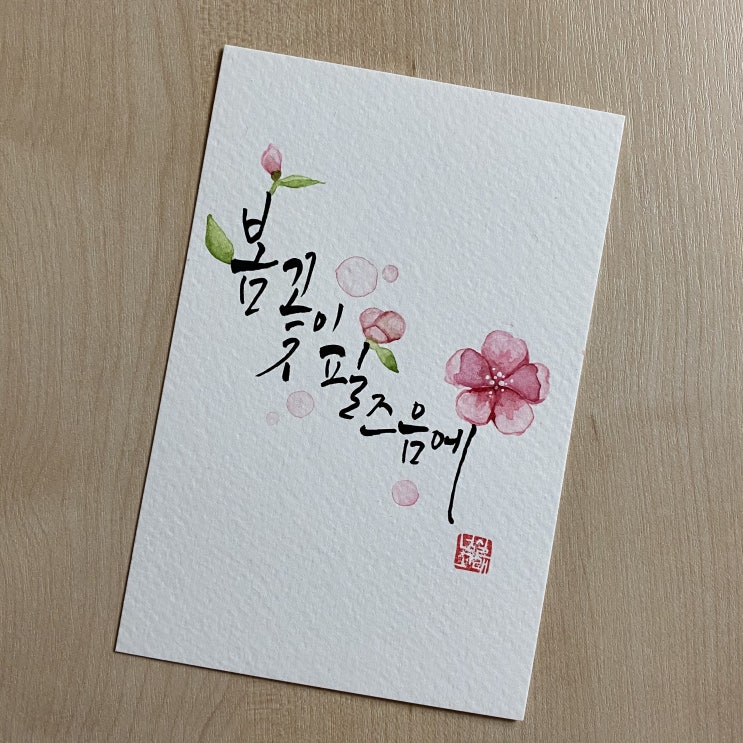 봄꽃이 필 즈음에